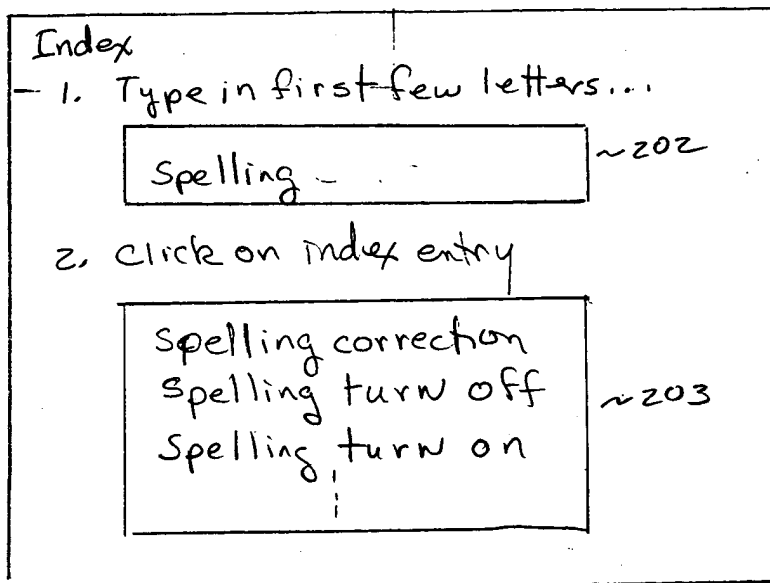 Index
1. Type in first few letters...
Spelling
~202
2. Click on index entry
Spelling correction
Spelling turn off
~203
Spelling turn on